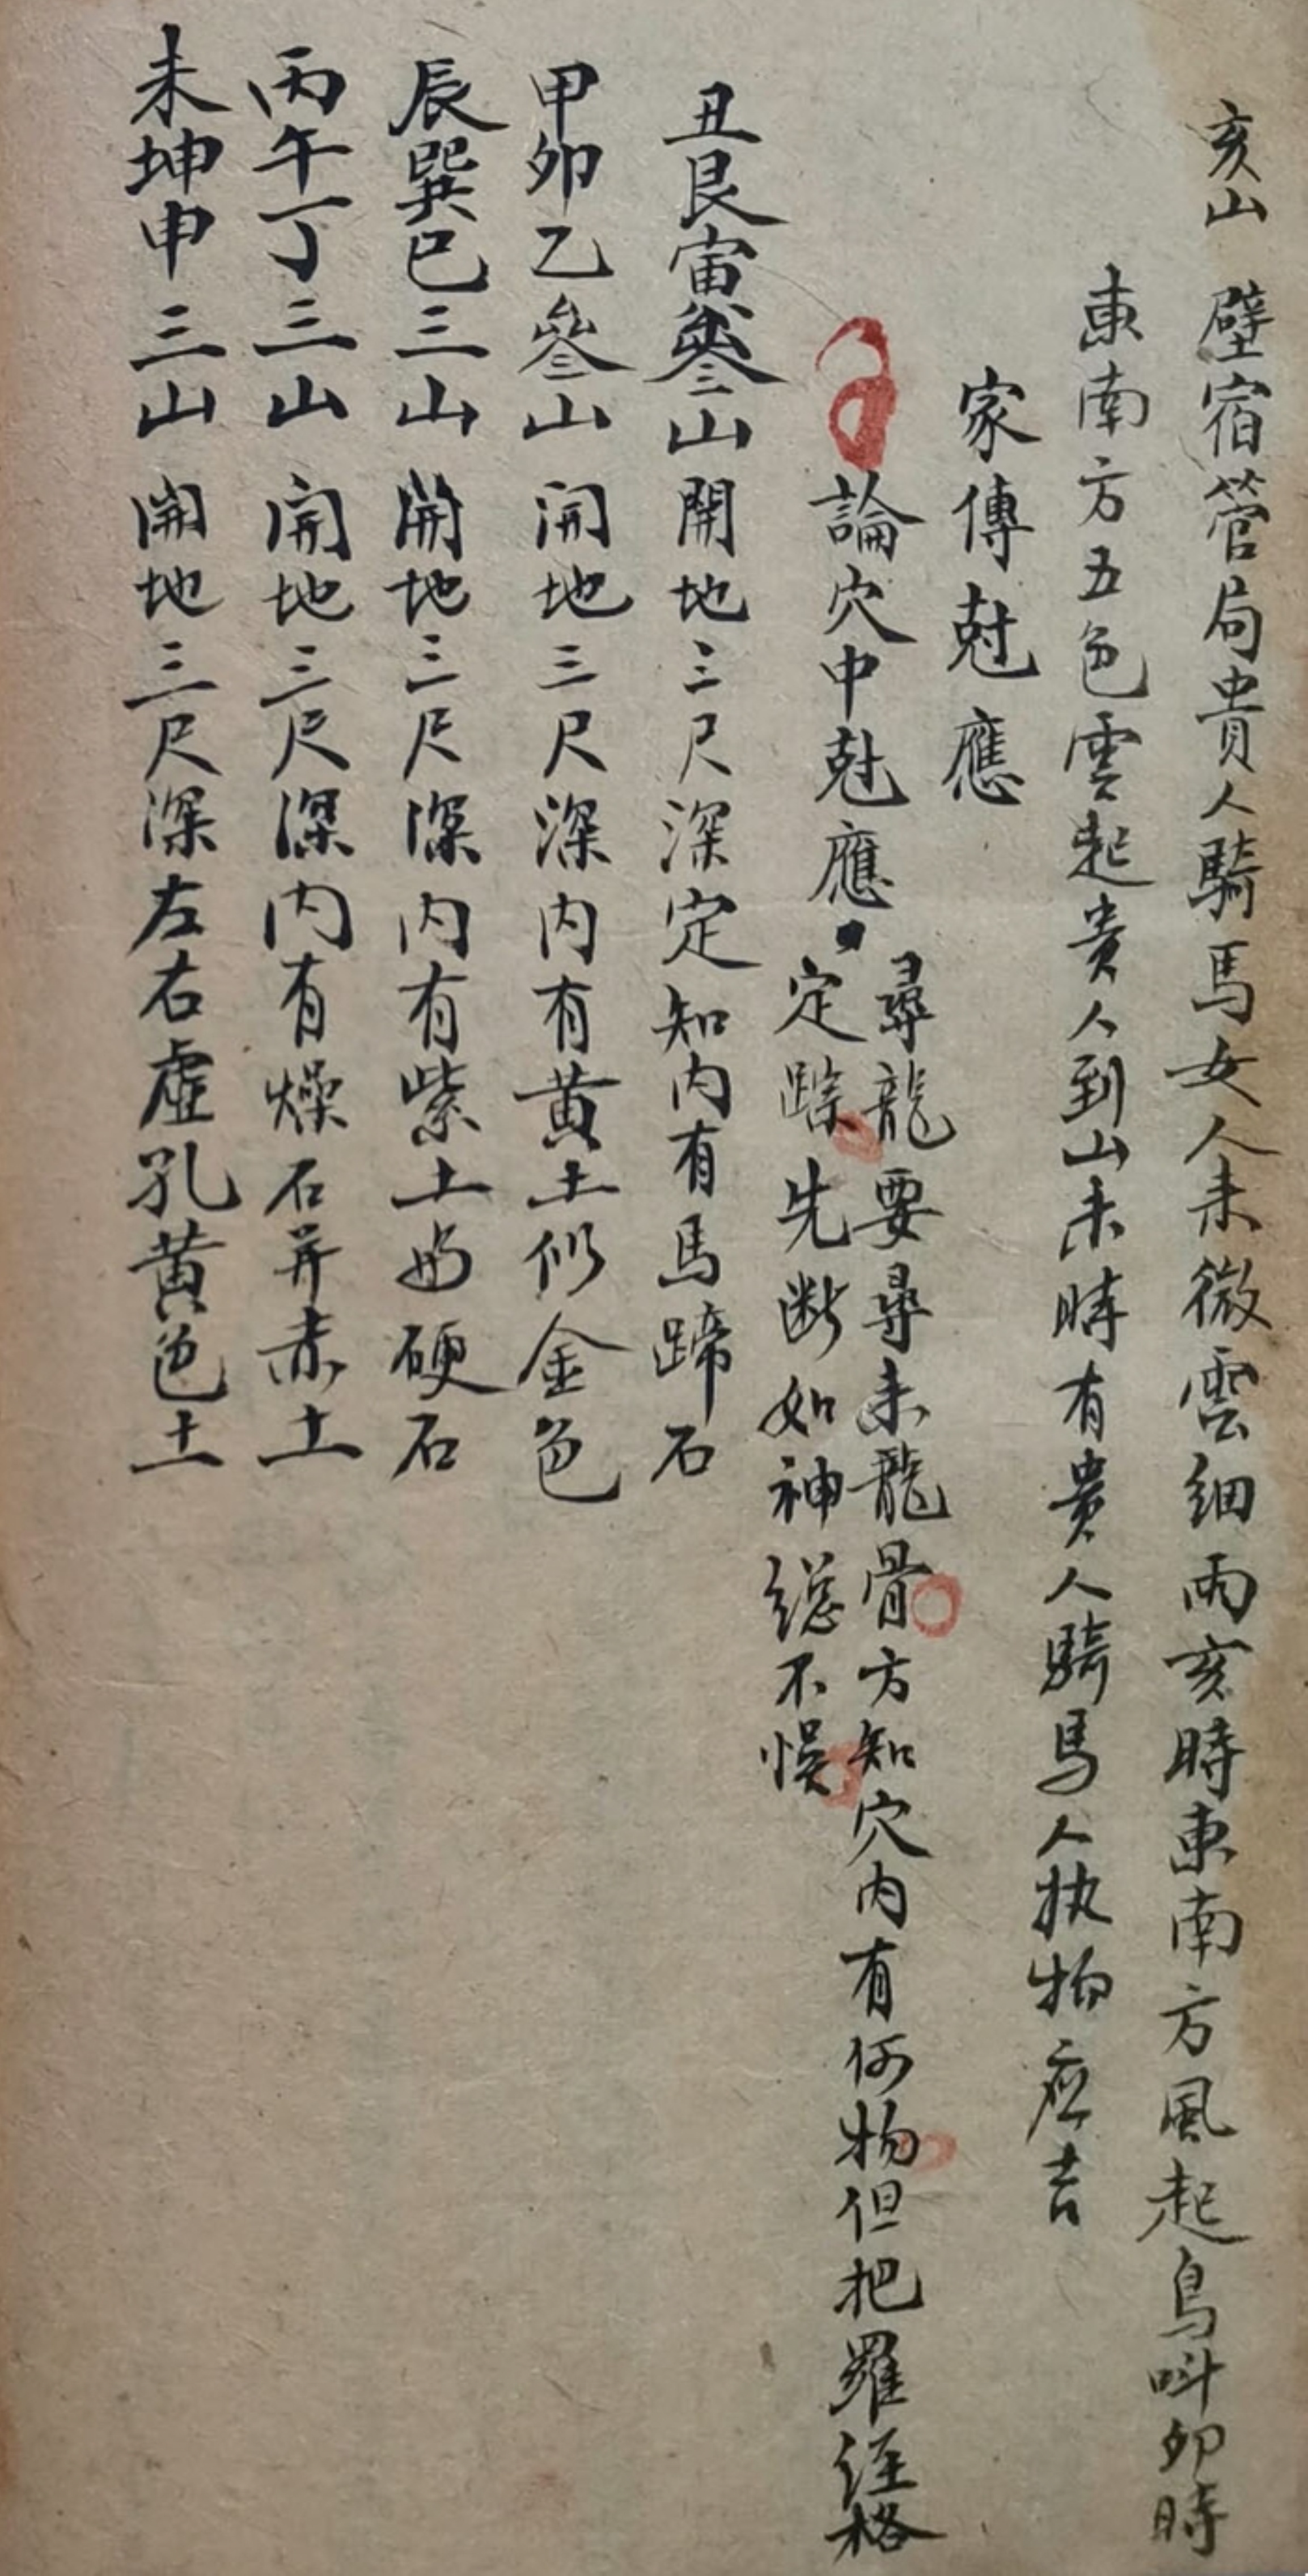 亥山 壁宿管局貴人騎馬女人未微雲細雨亥時東南方風起鳥呌卯時
東南方五色雲起貴人到山未時有貴人騎馬人执物应吉
家傳尅應
論穴中尅應
尋龍要尋未龍骨方知穴内有何物但把羅經格
定踪先断如神總不悮
丑艮寅叁山開地三尺深定知内有馬蹄石
甲卯乙叄山開地三尺深内有黄土似金色
辰巽巳三山開地三尺深内有紫土 硬石
丙午丁三山開地三尺深内有燥石并赤土
未坤申三山開地三尺深左右虚孔黄色土